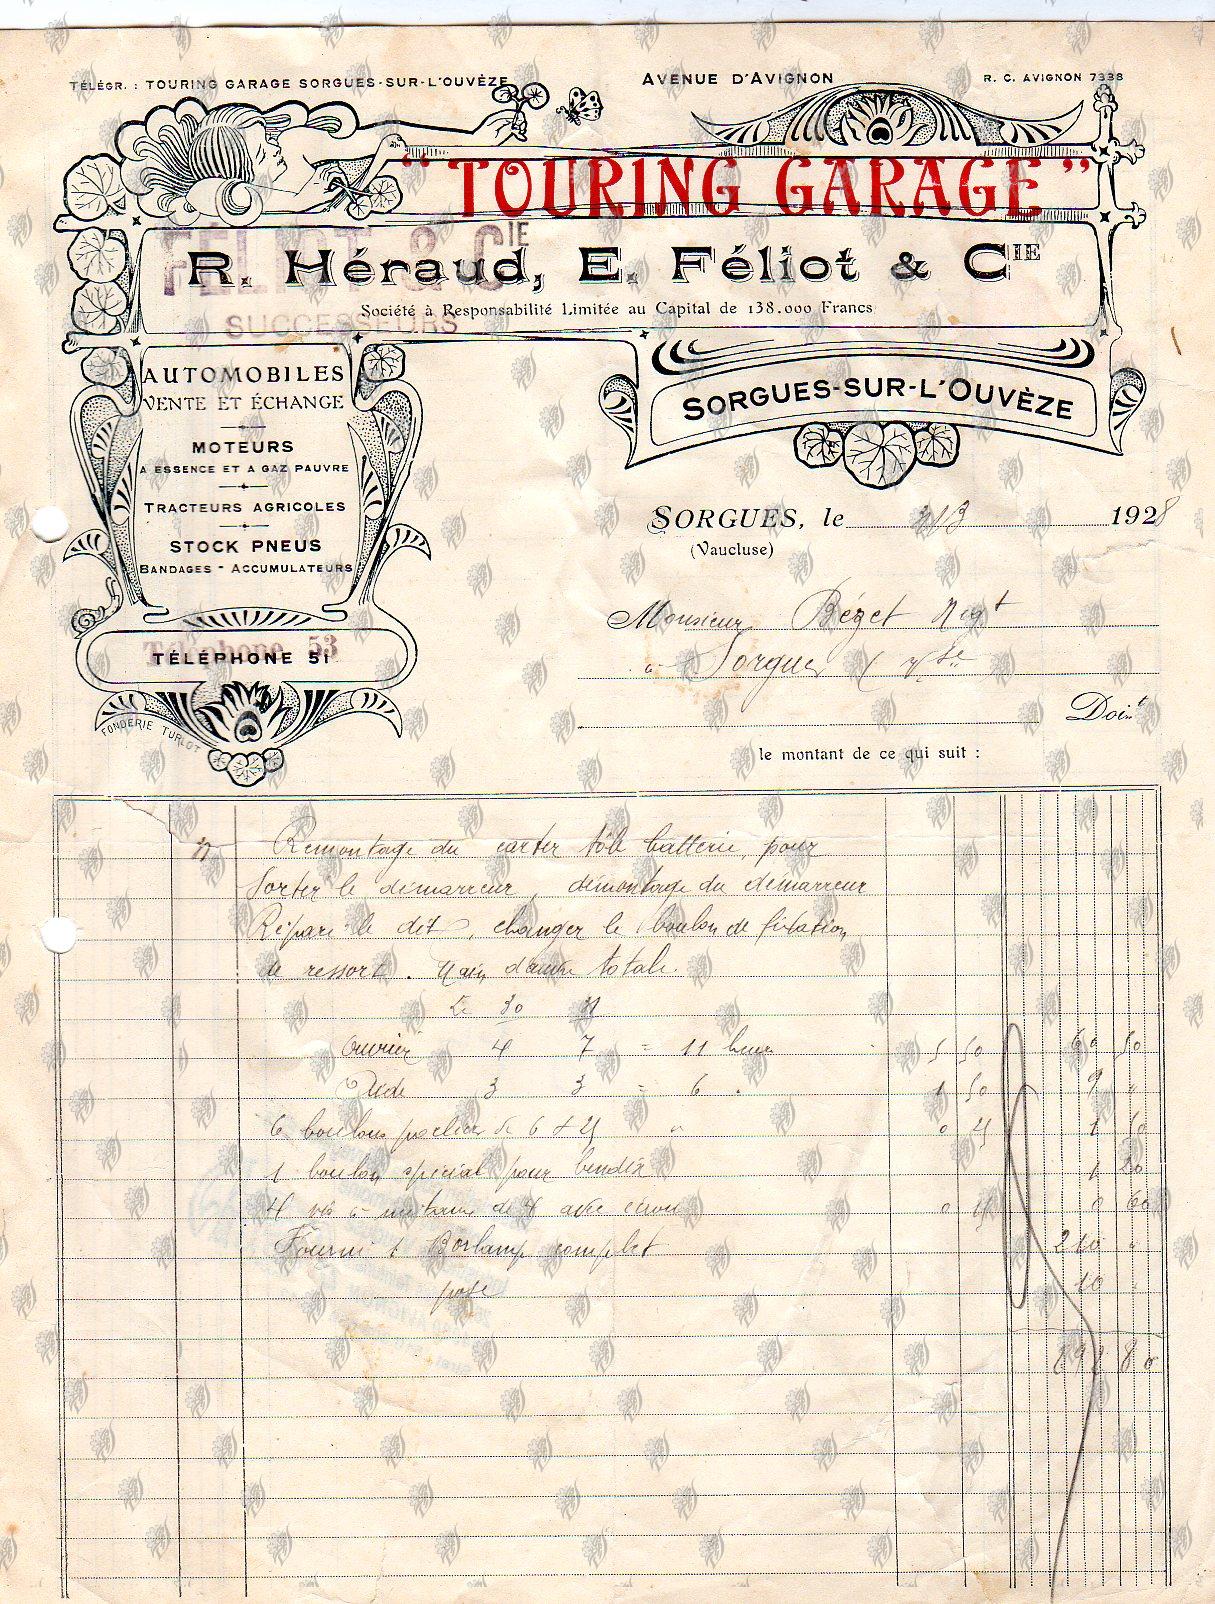 TÉLÉGR. : TOURING GARAGE SORGUES-SUR-L'OUVÈZE
AVENUE D'AVIGNON
R. C. AVIGNON 7338
"TOURING GARAGE"
FÉLIOT & CIE
R. Héraud, E. Féliot & CIE
Société à Responsabilité Limitée au Capital de 138.000 Francs
SUCCESSEURS
AUTOMOBILES
VENTE ET ÉCHANGE
MOTEURS
A ESSENCE ET A GAZ PAUVRE
TRACTEURS AGRICOLES
STOCK PNEUS
BANDAGES - ACCUMULATEURS
Téléphone 53
TÉLÉPHONE 51
FONDERIE TURLOT
SORGUES-SUR-L'OUVÈZE
SORGUES, le 1928
(Vaucluse)
Monsieur Bézet Negt
à Sorgues (Vse
Doit
le montant de ce qui suit :
Remontage du carter tôle batterie, pour
sortir le démarreur, démontage du démarreur
Réparé le dit, changer le boulon de fixation
de ressort. Main d'œuvre totale.
Le 30 31
Ouvrier 4 7 = 11 heures 5 50 60 50
Aide 3 3 = 6 " 1 50 9 "
6 boulons de 6 x 25 " 0 25 1 50
1 boulon spécial pour bendix 1 20
4 vis à métaux de 4 avec écrou 0 15 0 60
Fourni 1 complet 210 "
pose 10 "